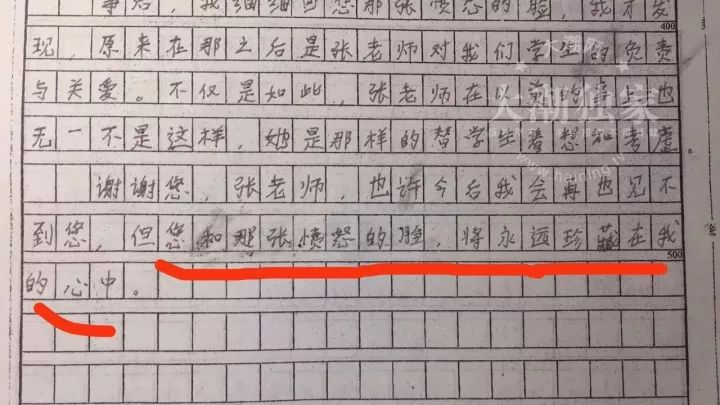 事后，我细细回想那张愤怒的脸，我才发
400
现，原来在那之后是张老师对我们学生的负责
与关爱。不仅是如此，张老师在以前的事上也
无一不是这样，她是那样的替学生着想和考虑
谢谢您，张老师，也许今后我会再也见不
到您，但您和那张愤怒的脸，将永远珍藏在我
500
的心中。
大潮独家
www.haining.tv